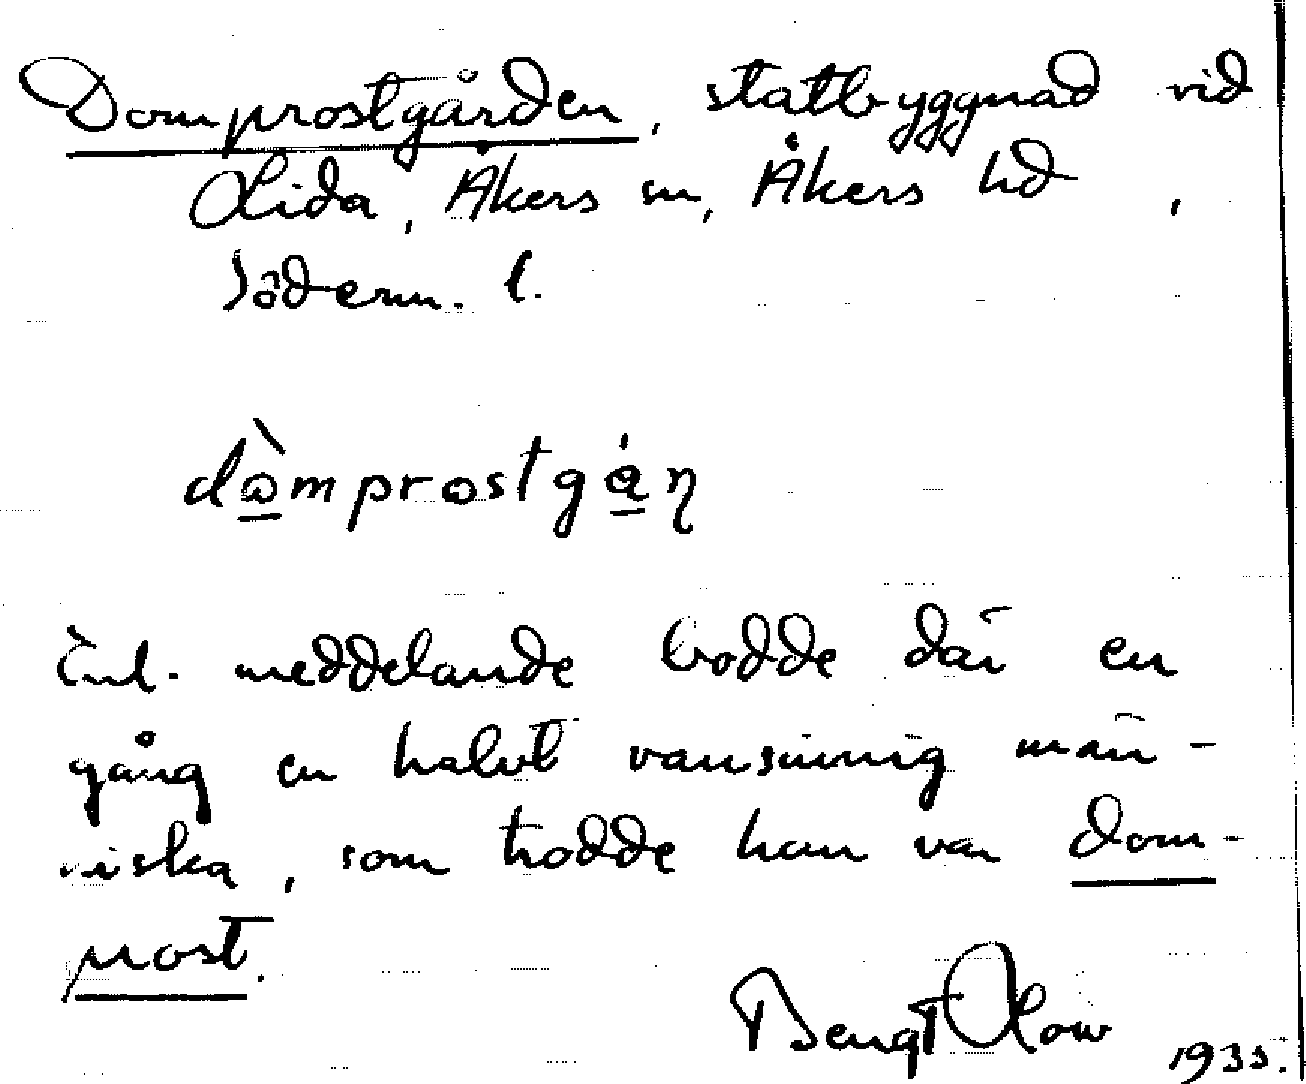 Domprostgården, statbyggnad vid
Lida, Åkers sn, Åkers hd,
Söderm. l.
dòmprostgán
Enl. meddelande bodde där en
gång en halvt vansinnig män-
niska, som trodde han var dom-
prost.
Bengt Olow 1935.